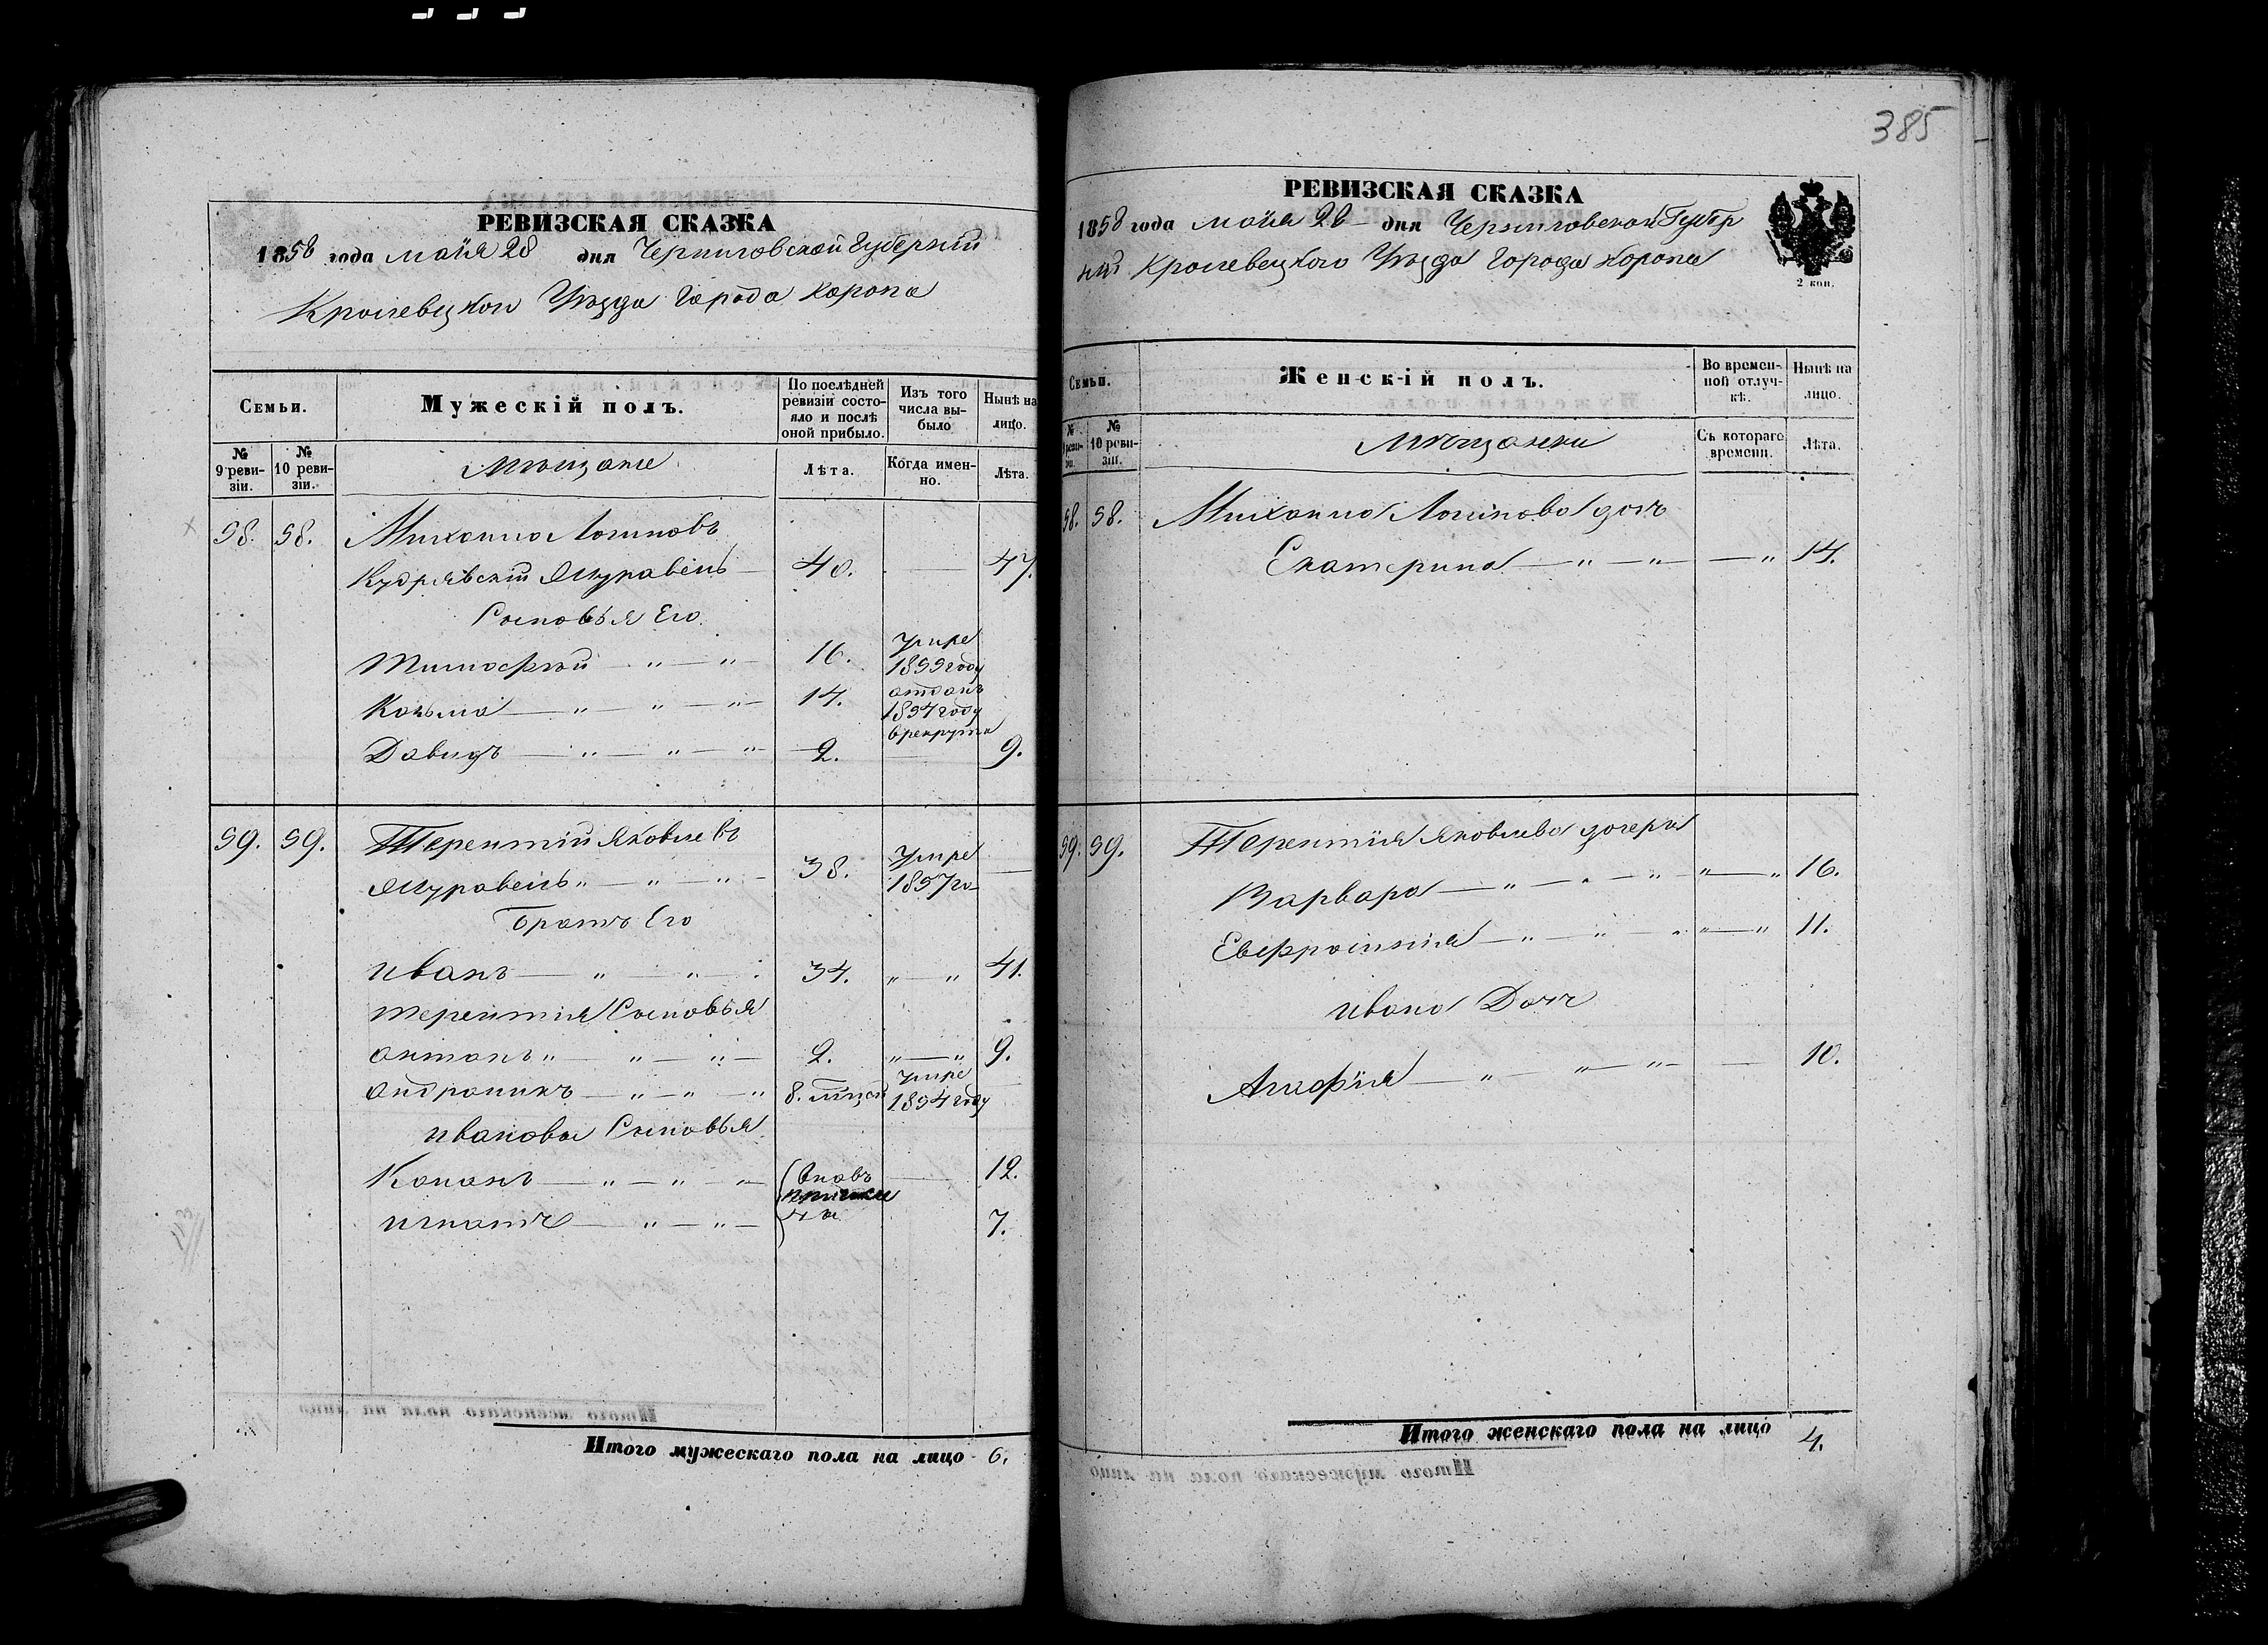 385
РЕВИЗСКАЯ СКАЗКА
1858 года майя 28 дня Черниговской Губерніи
Кролевецкого Уѣзда Города Коропа
Семьи.
Мужескій полъ.
По послѣдней ревизіи состояло и послѣ оной прибыло.
Изъ того числа выбыло
Нынѣ на лицо.
№ 9 ревизіи.
№ 10 ревизіи.
Мѣщане
Лѣта.
Когда именно.
Лѣта.
58. 58. Михаило Логиновъ
Кудрявскій Журавель 40. — 47.
Сыновья Его
Тимофѣй — „ — „ — 16. Умре 1855 году
Козьма — „ — „ — „ — 14. отданъ 1854 году в рекруты
Давидъ — „ — „ — „ 2. — 9.
59. 59. Терентій Яковлевъ
Журавель „ — „ — „ — 38. Умре 1857 го —
Братъ Его
Иванъ — „ — „ — 34. „ — „ 41.
Терентія Сыновья
Антонъ „ — „ — „ — 2. „ — „ 9.
Андроникъ — „ — „ — „ 8. мѣцей Умре 1854 году
Ивановы Сыновья
Кононъ — „ — „ — „ Вновь — 12.
Игнатъ — „ — „ — 7.
Итого мужескаго пола на лицо 6.
РЕВИЗСКАЯ СКАЗКА
1858 года майя 28 дня Черниговской Губер
ніи Кролевецкого Уѣзда Города Коропа
2 коп.
Семьи.
Женскій полъ.
Во временной отлучкѣ.
Нынѣ на лицо.
№ 9 ревизіи.
№ 10 ревизіи.
Мѣщанки
Съ котораго времени.
Лѣта.
58. 58. Михаила Логинова дочь
Екатерина — „ — „ — „ 14.
59. 59. Терентія Яковлева дочери
Варвара — „ — „ — „ „ — „ 16.
Евфросинія — „ — „ — „ „ — „ 11.
Ивана Дочь
Агафія — „ — „ — „ — 10.
Итого женскаго пола на лицо 4.